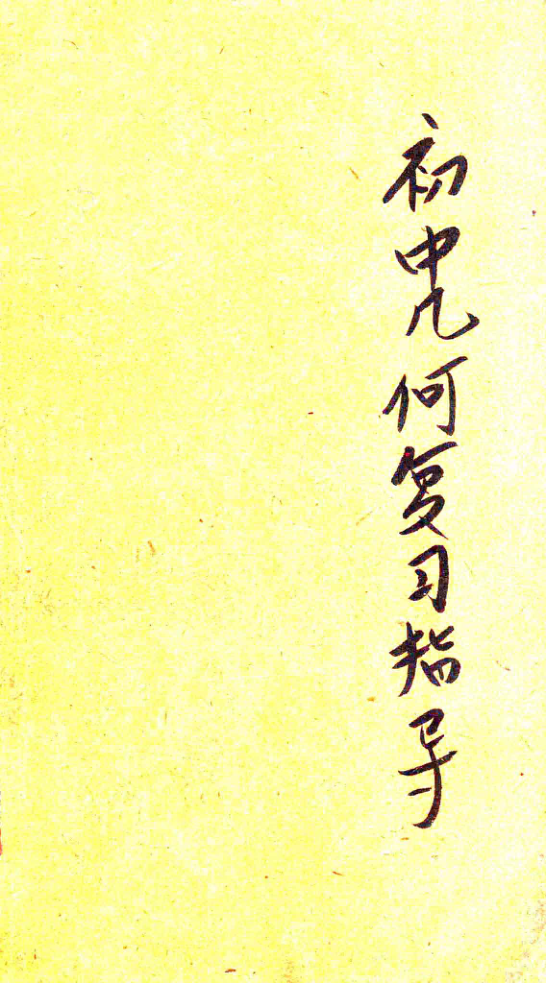 初中几何复习指导